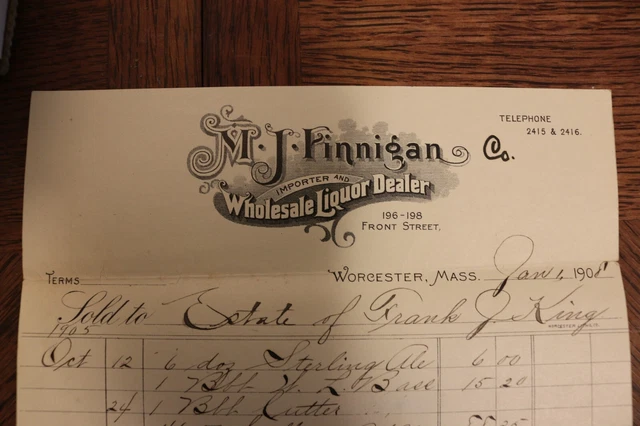 TELEPHONE
2415 & 2416.
M. J. Finnigan Co.
IMPORTER AND
Wholesale Liquor Dealer
196-198
FRONT STREET,
TERMS
WORCESTER, MASS. Jan 1, 1908
Sold to Estate of Frank J. King
1905
Oct 12 6 doz Sterling Ale 6 00
1 Bbl Bass 15 20
24 1 Bbl Cutter